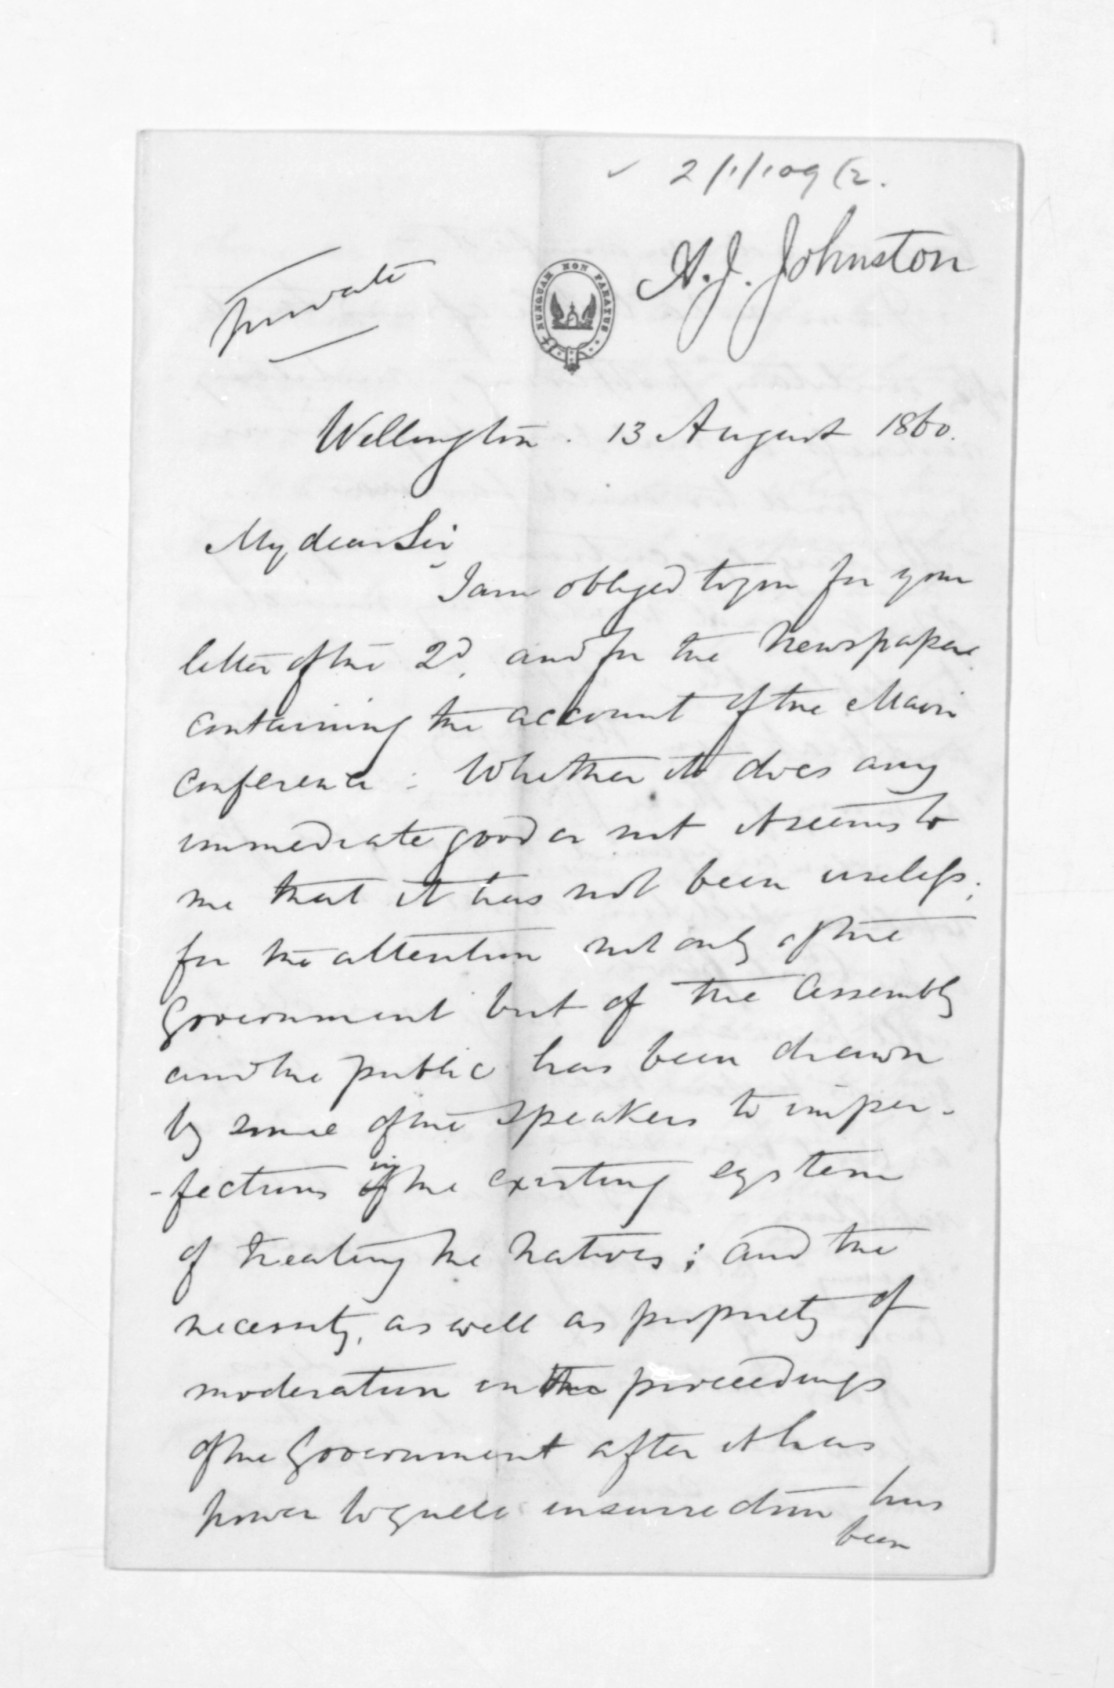 ✓ 2/1/109 (2.
A. J. Johnston
private
NUNQUAM NON PARATUS
Wellington. 13 August 1860.
My dear Sir,
I am obliged to you for your
letter of the 2d. and for the Newspapers
containing the account of the Maori
conference: Whether it does any
immediate good or not it seems to
me that it has not been useless;
for the attention not only of the
Government but of the Assembly
and the public has been drawn
by some of the speakers to imper-
-fections in the existing system
of treating the natives; and the
necessity, as well as propriety of
moderation in the proceedings
of the Government after it has
power to quell insurrection has
been